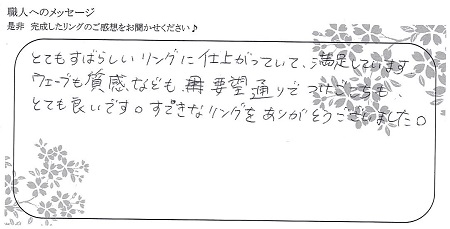 職人へのメッセージ
是非 完成したリングのご感想をお聞かせください♪
とてもすばらしいリングに仕上がっていて、満足しています。
ウェーブも質感なども、要望通りで つけごこちも、
とても良いです。すてきなリングをありがとうございました。